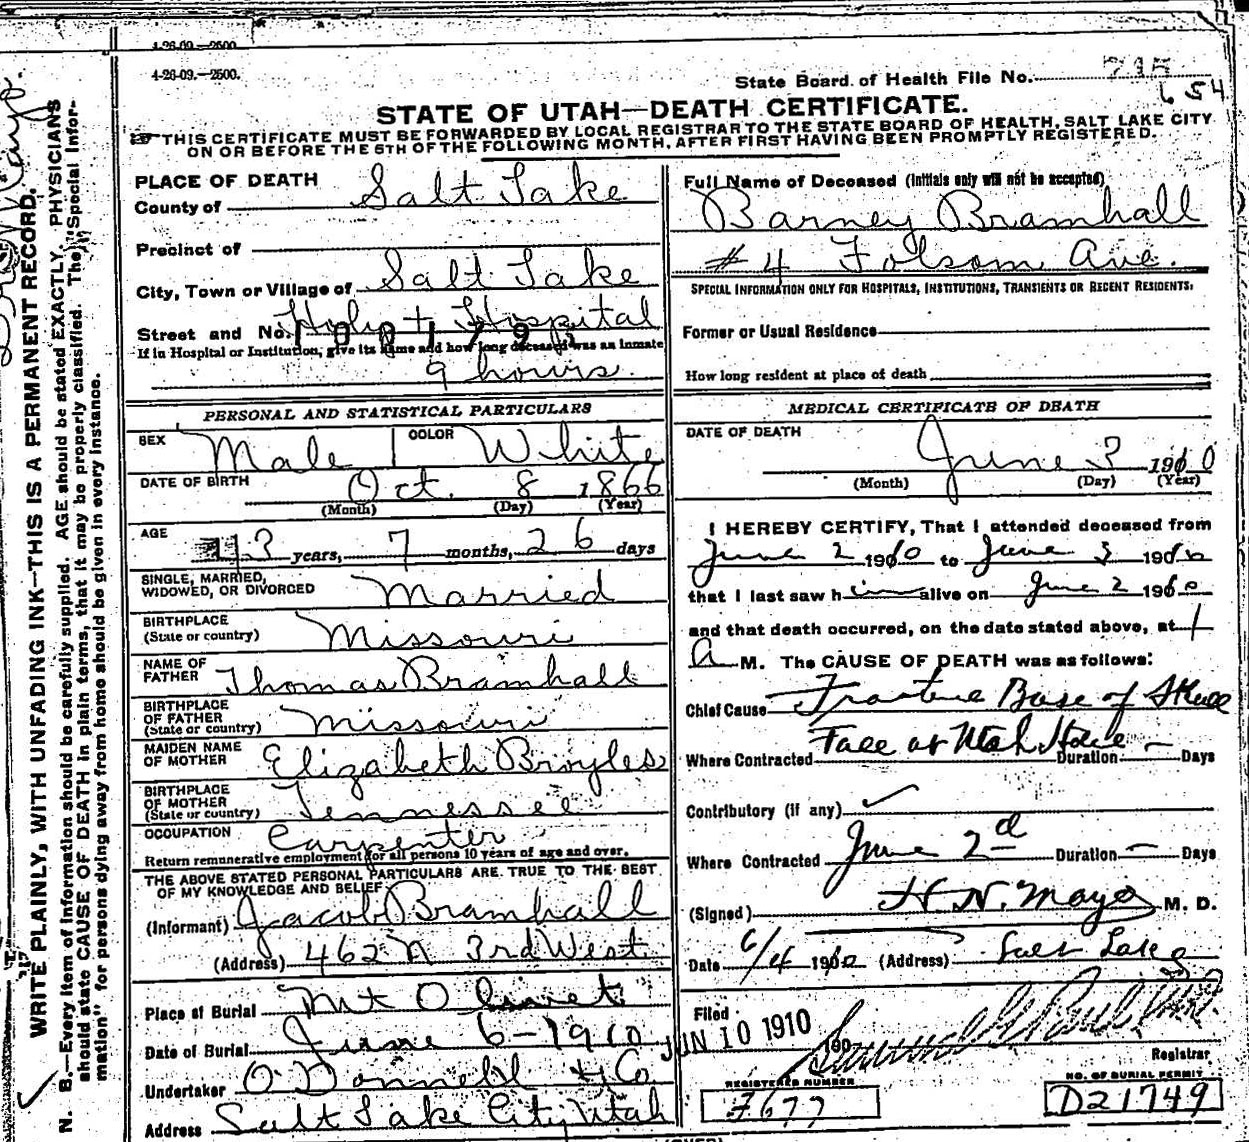 4-26-09.—2500.
4-26-09.—2500.
State Board of Health File No.
654
STATE OF UTAH—DEATH CERTIFICATE.
THIS CERTIFICATE MUST BE FORWARDED BY LOCAL REGISTRAR TO THE STATE BOARD OF HEALTH, SALT LAKE CITY
ON OR BEFORE THE 5TH OF THE FOLLOWING MONTH, AFTER FIRST HAVING BEEN PROMPTLY REGISTERED.
WRITE PLAINLY, WITH UNFADING INK—THIS IS A PERMANENT RECORD.
N. B.—Every item of information should be carefully supplied. AGE should be stated EXACTLY. PHYSICIANS
should state CAUSE OF DEATH in plain terms, that it may be properly classified. The "Special Infor-
mation" for persons dying away from home should be given in every instance.
PLACE OF DEATH
County of Salt Lake
Precinct of
City, Town or Village of Salt Lake
Street and No. Holy + Hospital
If in Hospital or Institution, give its name and how long deceased was an inmate
9 hours.
PERSONAL AND STATISTICAL PARTICULARS
SEX Male COLOR White
DATE OF BIRTH Oct. 8 1866
(Month) (Day) (Year)
AGE 43 years, 7 months, 26 days
SINGLE, MARRIED,
WIDOWED, OR DIVORCED Married
BIRTHPLACE
(State or country) Missouri
NAME OF
FATHER Thomas Bramhall
BIRTHPLACE
OF FATHER
(State or country) Missouri
MAIDEN NAME
OF MOTHER Elizabeth Broyles
BIRTHPLACE
OF MOTHER
(State or country) Tennessee
OCCUPATION Carpenter
Return remunerative employment for all persons 10 years of age and over.
THE ABOVE STATED PERSONAL PARTICULARS ARE TRUE TO THE BEST
OF MY KNOWLEDGE AND BELIEF
(Informant) Jacob Bramhall
(Address) 462 N 3rd West
Place of Burial Mt Olivet
Date of Burial June 6-1910
Undertaker O'Donnell & Co
Address Salt Lake City Utah
Full Name of Deceased (Initials only will not be accepted)
Barney Bramhall
#4 Folsom Ave.
SPECIAL INFORMATION ONLY FOR HOSPITALS, INSTITUTIONS, TRANSIENTS OR RECENT RESIDENTS:
Former or Usual Residence
How long resident at place of death
MEDICAL CERTIFICATE OF DEATH
DATE OF DEATH June 3 1910
(Month) (Day) (Year)
I HEREBY CERTIFY, That I attended deceased from
June 2 1910 to June 3 1910
that I last saw him alive on June 2 1910
and that death occurred, on the date stated above, at 1
A M. The CAUSE OF DEATH was as follows:
Chief Cause Fracture Base of Skull
Fall at Utah Hotel
Where Contracted Duration — Days
Contributory (if any)
Where Contracted June 2d Duration — Days
(Signed) H. N. Mayo M. D.
Date 6/4 1910 (Address) Salt Lake
Filed JUN 10 1910 190
Registrar
REGISTERED NUMBER
NO. OF BURIAL PERMIT
F677
D21749
(OVER)